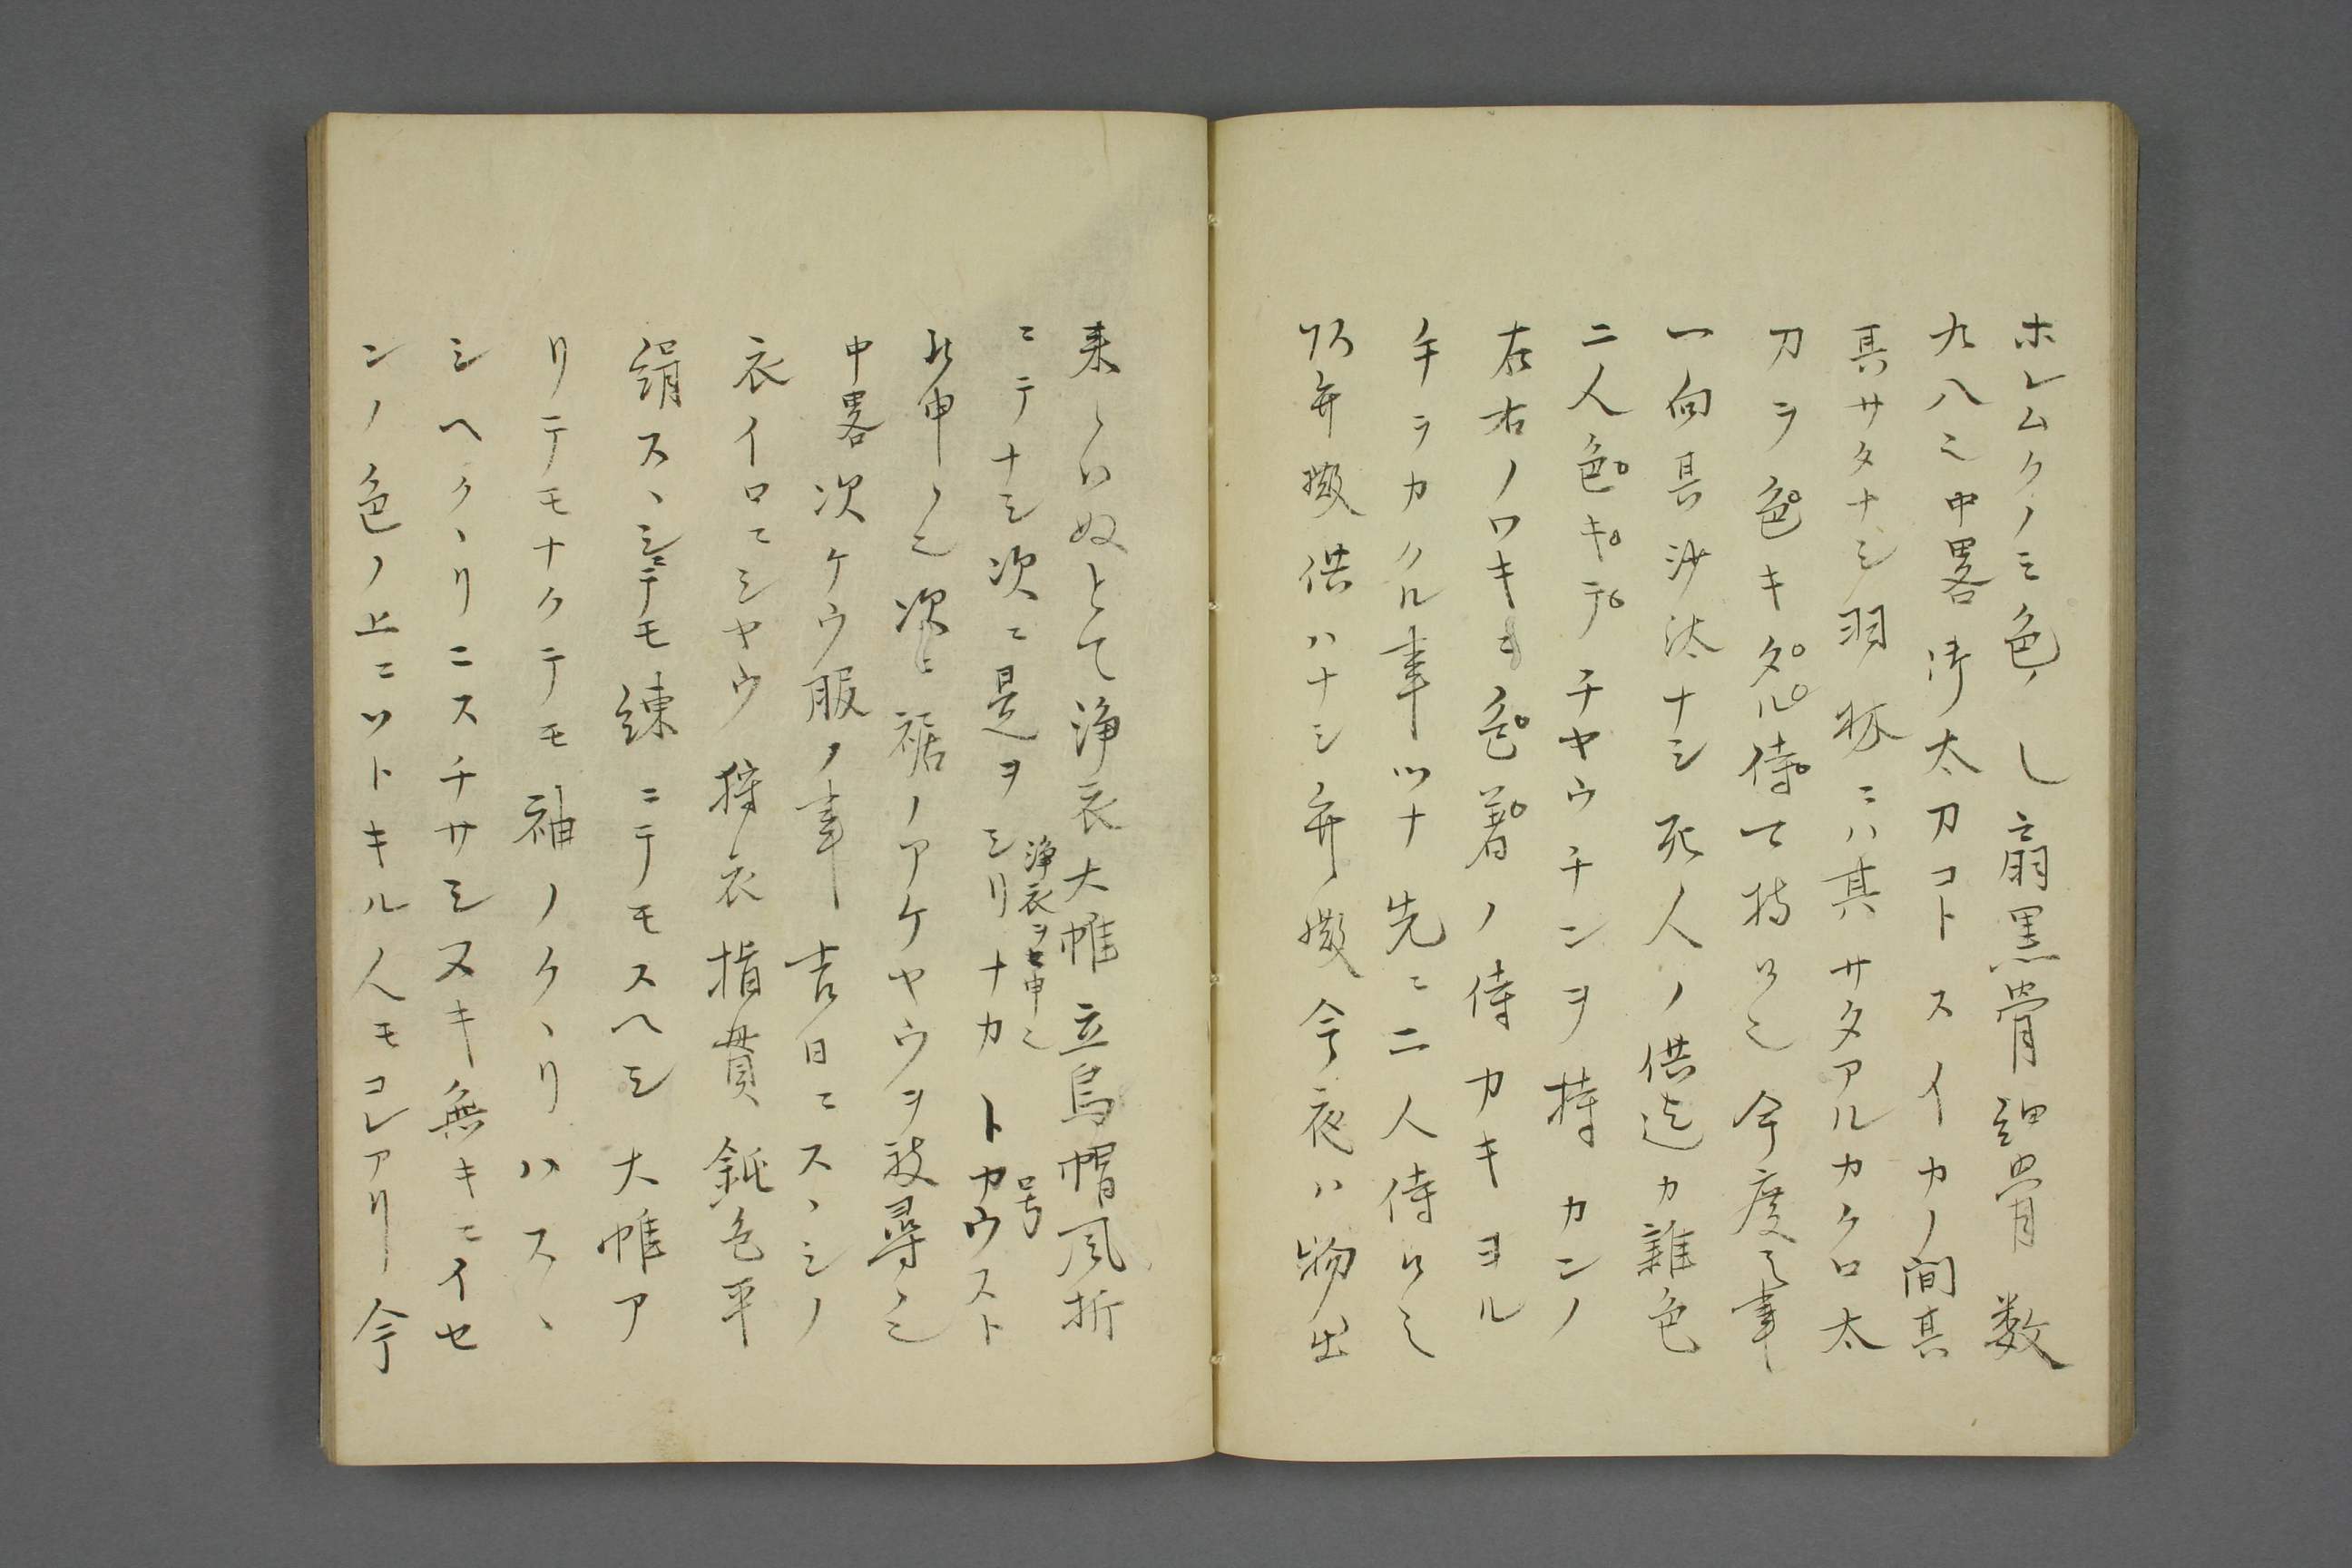 ホレムクノミ色ノし扇黒骨 骨 数
九八ミ中畧 御太刀コト スイカノ間其
其サタナシ羽林ニハ其サタアルカクロ太
刀ヲ色キタル侍て持 今度之事
一向其沙汰ナシ 死人ノ供迄カ雑色
二人色キテ チヤウチンヲ持 カンノ
左右ノワキヨ色着ノ侍 カキヨル
手ヲカクル事ツナ 先ニ二人侍
以布 供ハナシ 布 今夜ハ物出
来 ぬとて浄衣大帷立烏帽風折
ニテナシ次ニ是ヲシリナカ トカウスト
浄衣ヲセ申
号
申ノ 次ニ裾ノアケヤウヲ被尋
中畧 次ケウ服ノ事 吉日ニスヽシノ
衣イロニシヤウ 狩衣 指貫 鈍色平
絹スヽシニテモ 練ニテモスヘシ 大帷ア
リテモナクテモ袖ノクヽリハスヽ
シヘクヽリニスチサシヌキ無キニイセ
ンノ色ノ上ニツトキル人モコレアリ 今